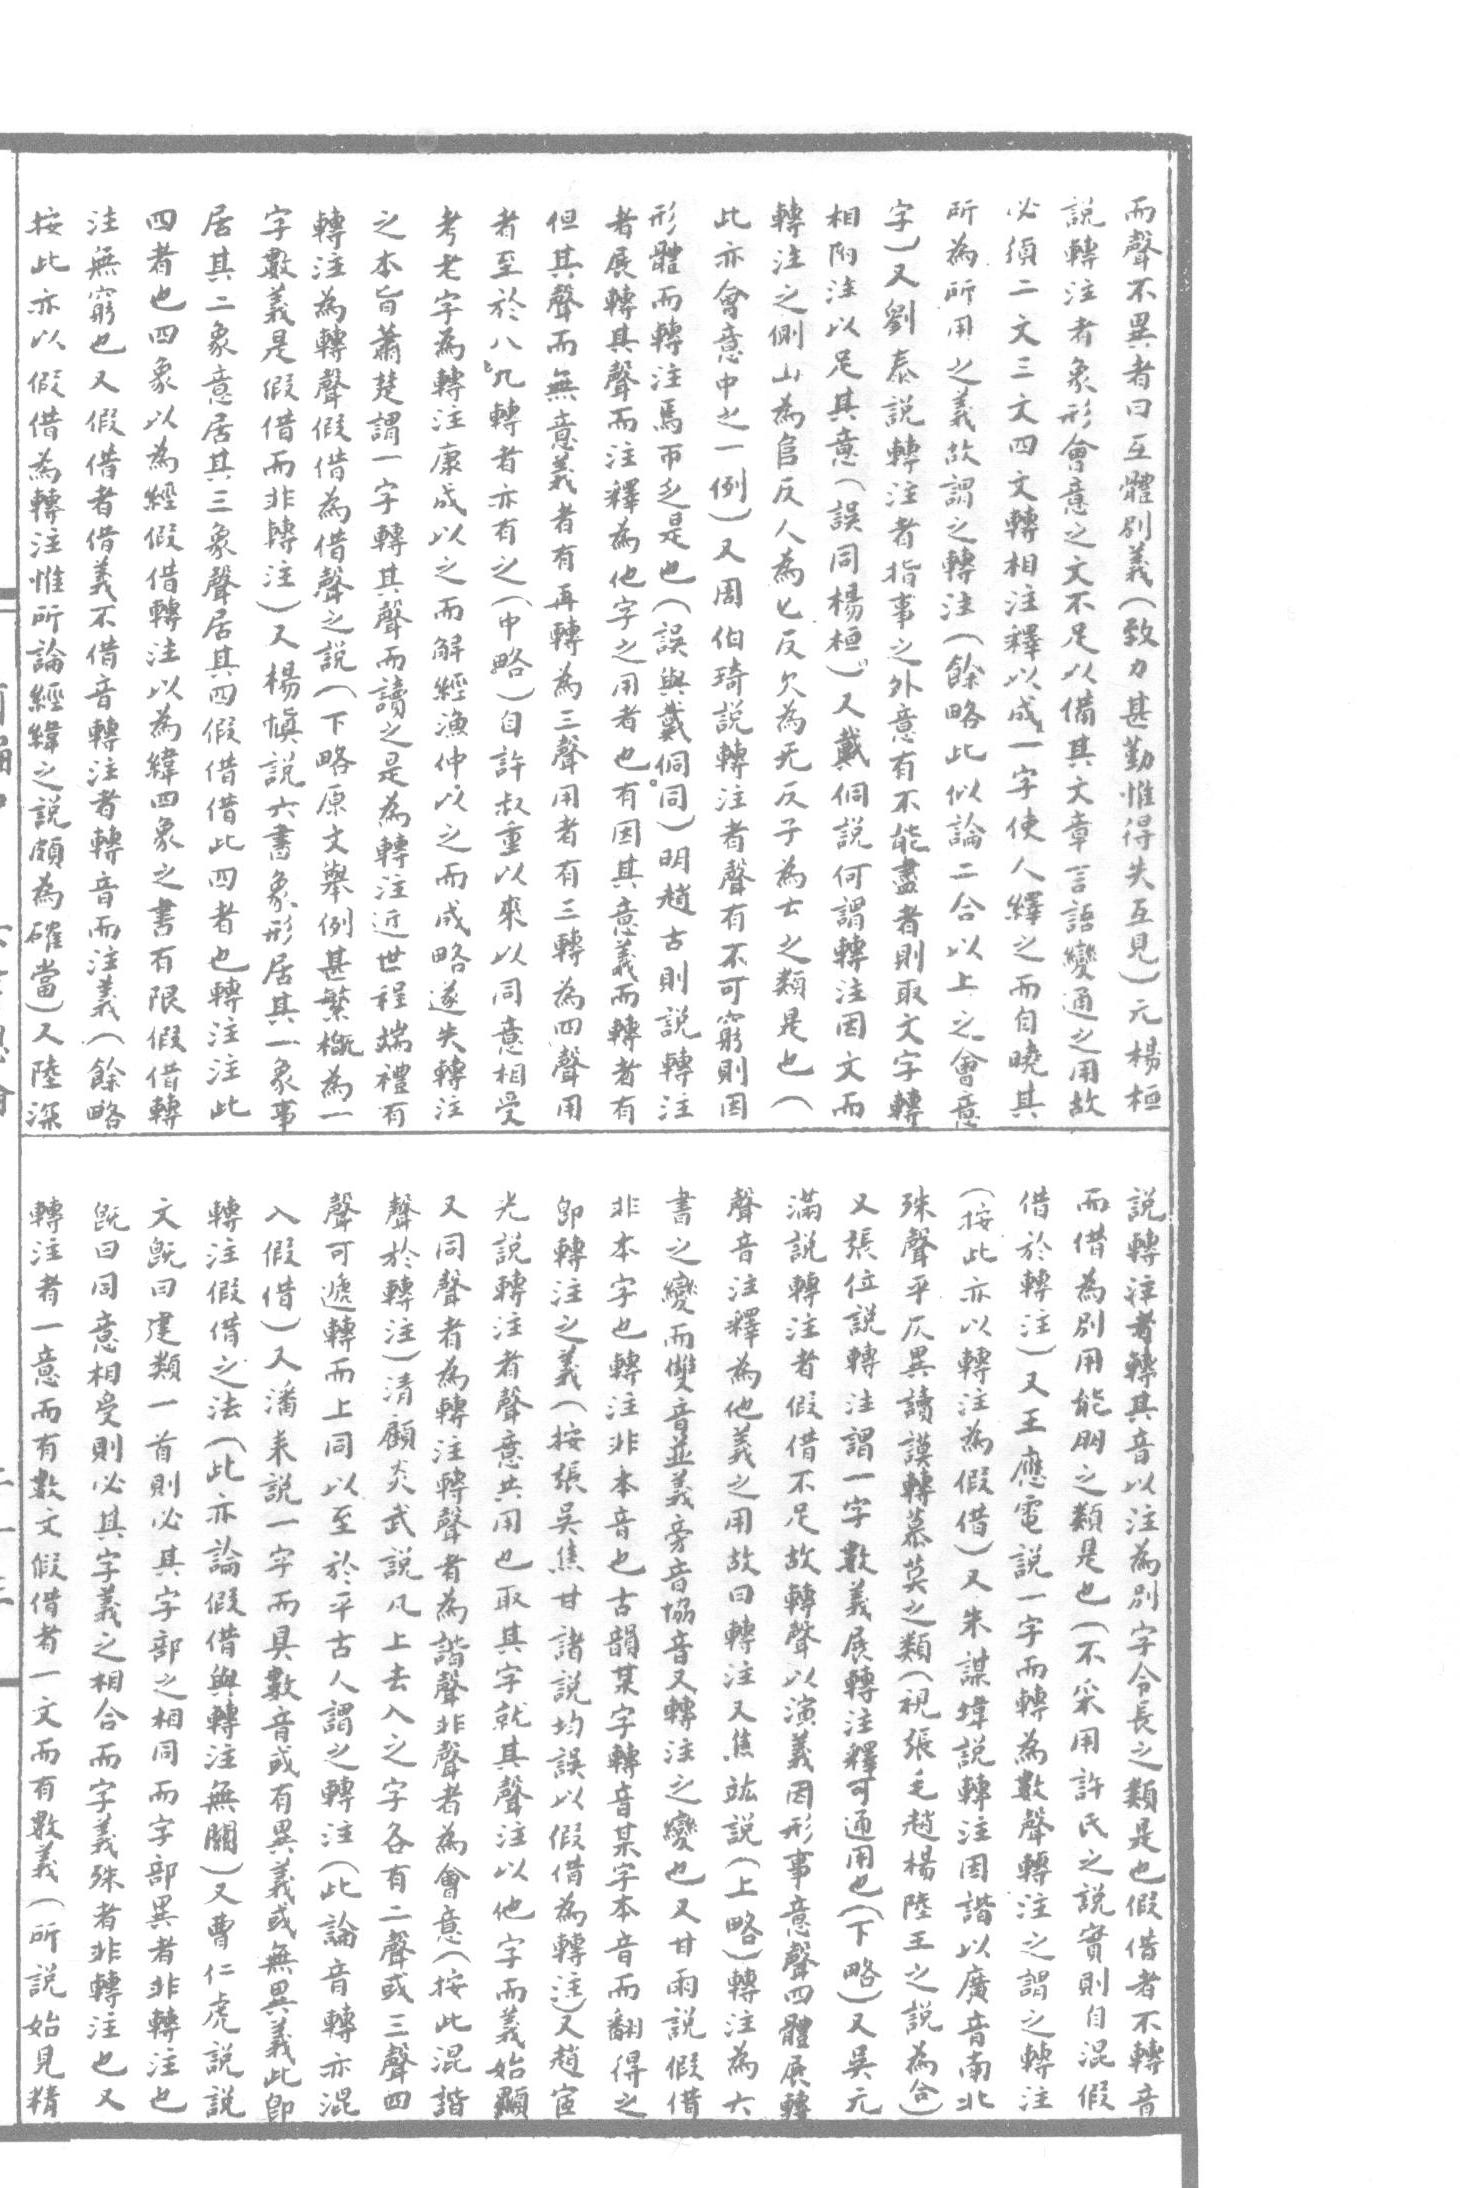 而聲不異者曰互體別義（致力甚勤惟得失互見）元楊桓
說轉注者象形會意之文不足以備其文章言語變通之用故
必須二文三文四文轉相注釋以成一字使人繹之而自曉其
所為所用之義故謂之轉注（餘略此似論二合以上之會意
字）又劉泰說轉注者指事之外意有不能盡者則取文字轉
相附注以足其意（誤同楊桓）又戴侗說何謂轉注因文而
轉注之側山為𨸏反人為匕反欠為旡反子為𠫓之類是也（
此亦會意中之一例）又周伯琦說轉注者聲有不可窮則因
形體而轉注焉帀乏是也（誤與戴侗同）明趙古則說轉注
者展轉其聲而注釋為他字之用者也有因其意義而轉者有
但其聲而無意義者有再轉為三聲用者有三轉為四聲用
者至於八九轉者亦有之（中略）自許叔重以來以同意相受
考老字為轉注康成以之而解經漁仲以之而成略遂失轉注
之本旨蕭楚謂一字轉其聲而讀之是為轉注近世程端禮有
轉注為轉聲假借為借聲之說（下略原文舉例甚繁概為一
字數義是假借而非轉注）又楊慎說六書象形居其一象事
居其二象意居其三象聲居其四假借借此四者也轉注注此
四者也四象以為經假借轉注以為緯四象之書有限假借轉
注無窮也又假借者借義不借音轉注者轉音而注義（餘略
按此亦以假借為轉注惟所論經緯之說頗為確當）又陸深
說轉注者轉其音以注為別字令長之類是也假借者不轉音
而借為別用能朋之類是也（不采用許氏之說實則自混假
借於轉注）又王應電說一字而轉為數聲轉注之謂之轉注
（按此亦以轉注為假借）又朱謀㙔說轉注因諧以廣音南北
殊聲平仄異讀謨轉慕莫之類（視張毛趙楊陸王之說為合）
又張位說轉注謂一字數義展轉注釋可通用也（下略）又吳元
滿說轉注者假借不足故轉聲以演義因形事意聲四體展轉
聲音注釋為他義之用故曰轉注又焦竑說（上略）轉注為六
書之變而雙音並義旁音協音又轉注之變也又甘雨說假借
非本字也轉注非本音也古韻某字轉音某字本音而翻得之
即轉注之義（按張吳焦甘諸說均誤以假借為轉注）又趙宧
光說轉注者聲意共用也取其字就其聲注以他字而義始顯
又同聲者為轉注轉聲者為諧聲非聲者為會意（按此混諧
聲於轉注）清顧炎武說凡上去入之字各有二聲或三聲四
聲可遞轉而上同以至於平古人謂之轉注（此論音轉亦混
入假借）又潘耒說一字而具數音或有異義或無異義此即
轉注假借之法（此亦論假借與轉注無關）又曹仁虎說說
文既曰建類一首則必其字部之相同而字部異者非轉注也
既曰同意相受則必其字義之相合而字義殊者非轉注也又
轉注者一意而有數文假借者一文而有數義（所說始見精